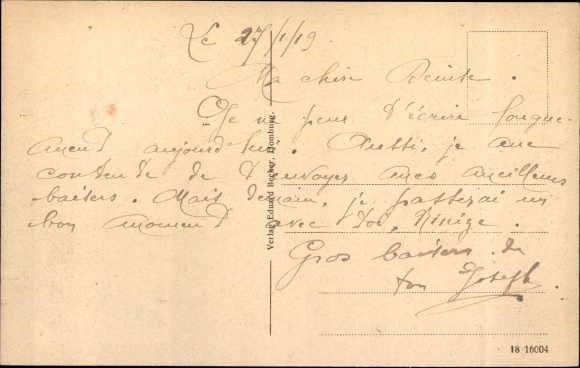 Le 27/1/19
Ma chère Denise.
Je ne peux t'écrire longue-
ment aujourd'hui. Aussi, je me
contente de t'envoyer mes meilleurs
baisers. Mais demain, je passerai un
bon moment avec toi, Ninize.
Gros baisers de
ton Joseph
Verlag Eduard Becker, Homburg.
18 16004